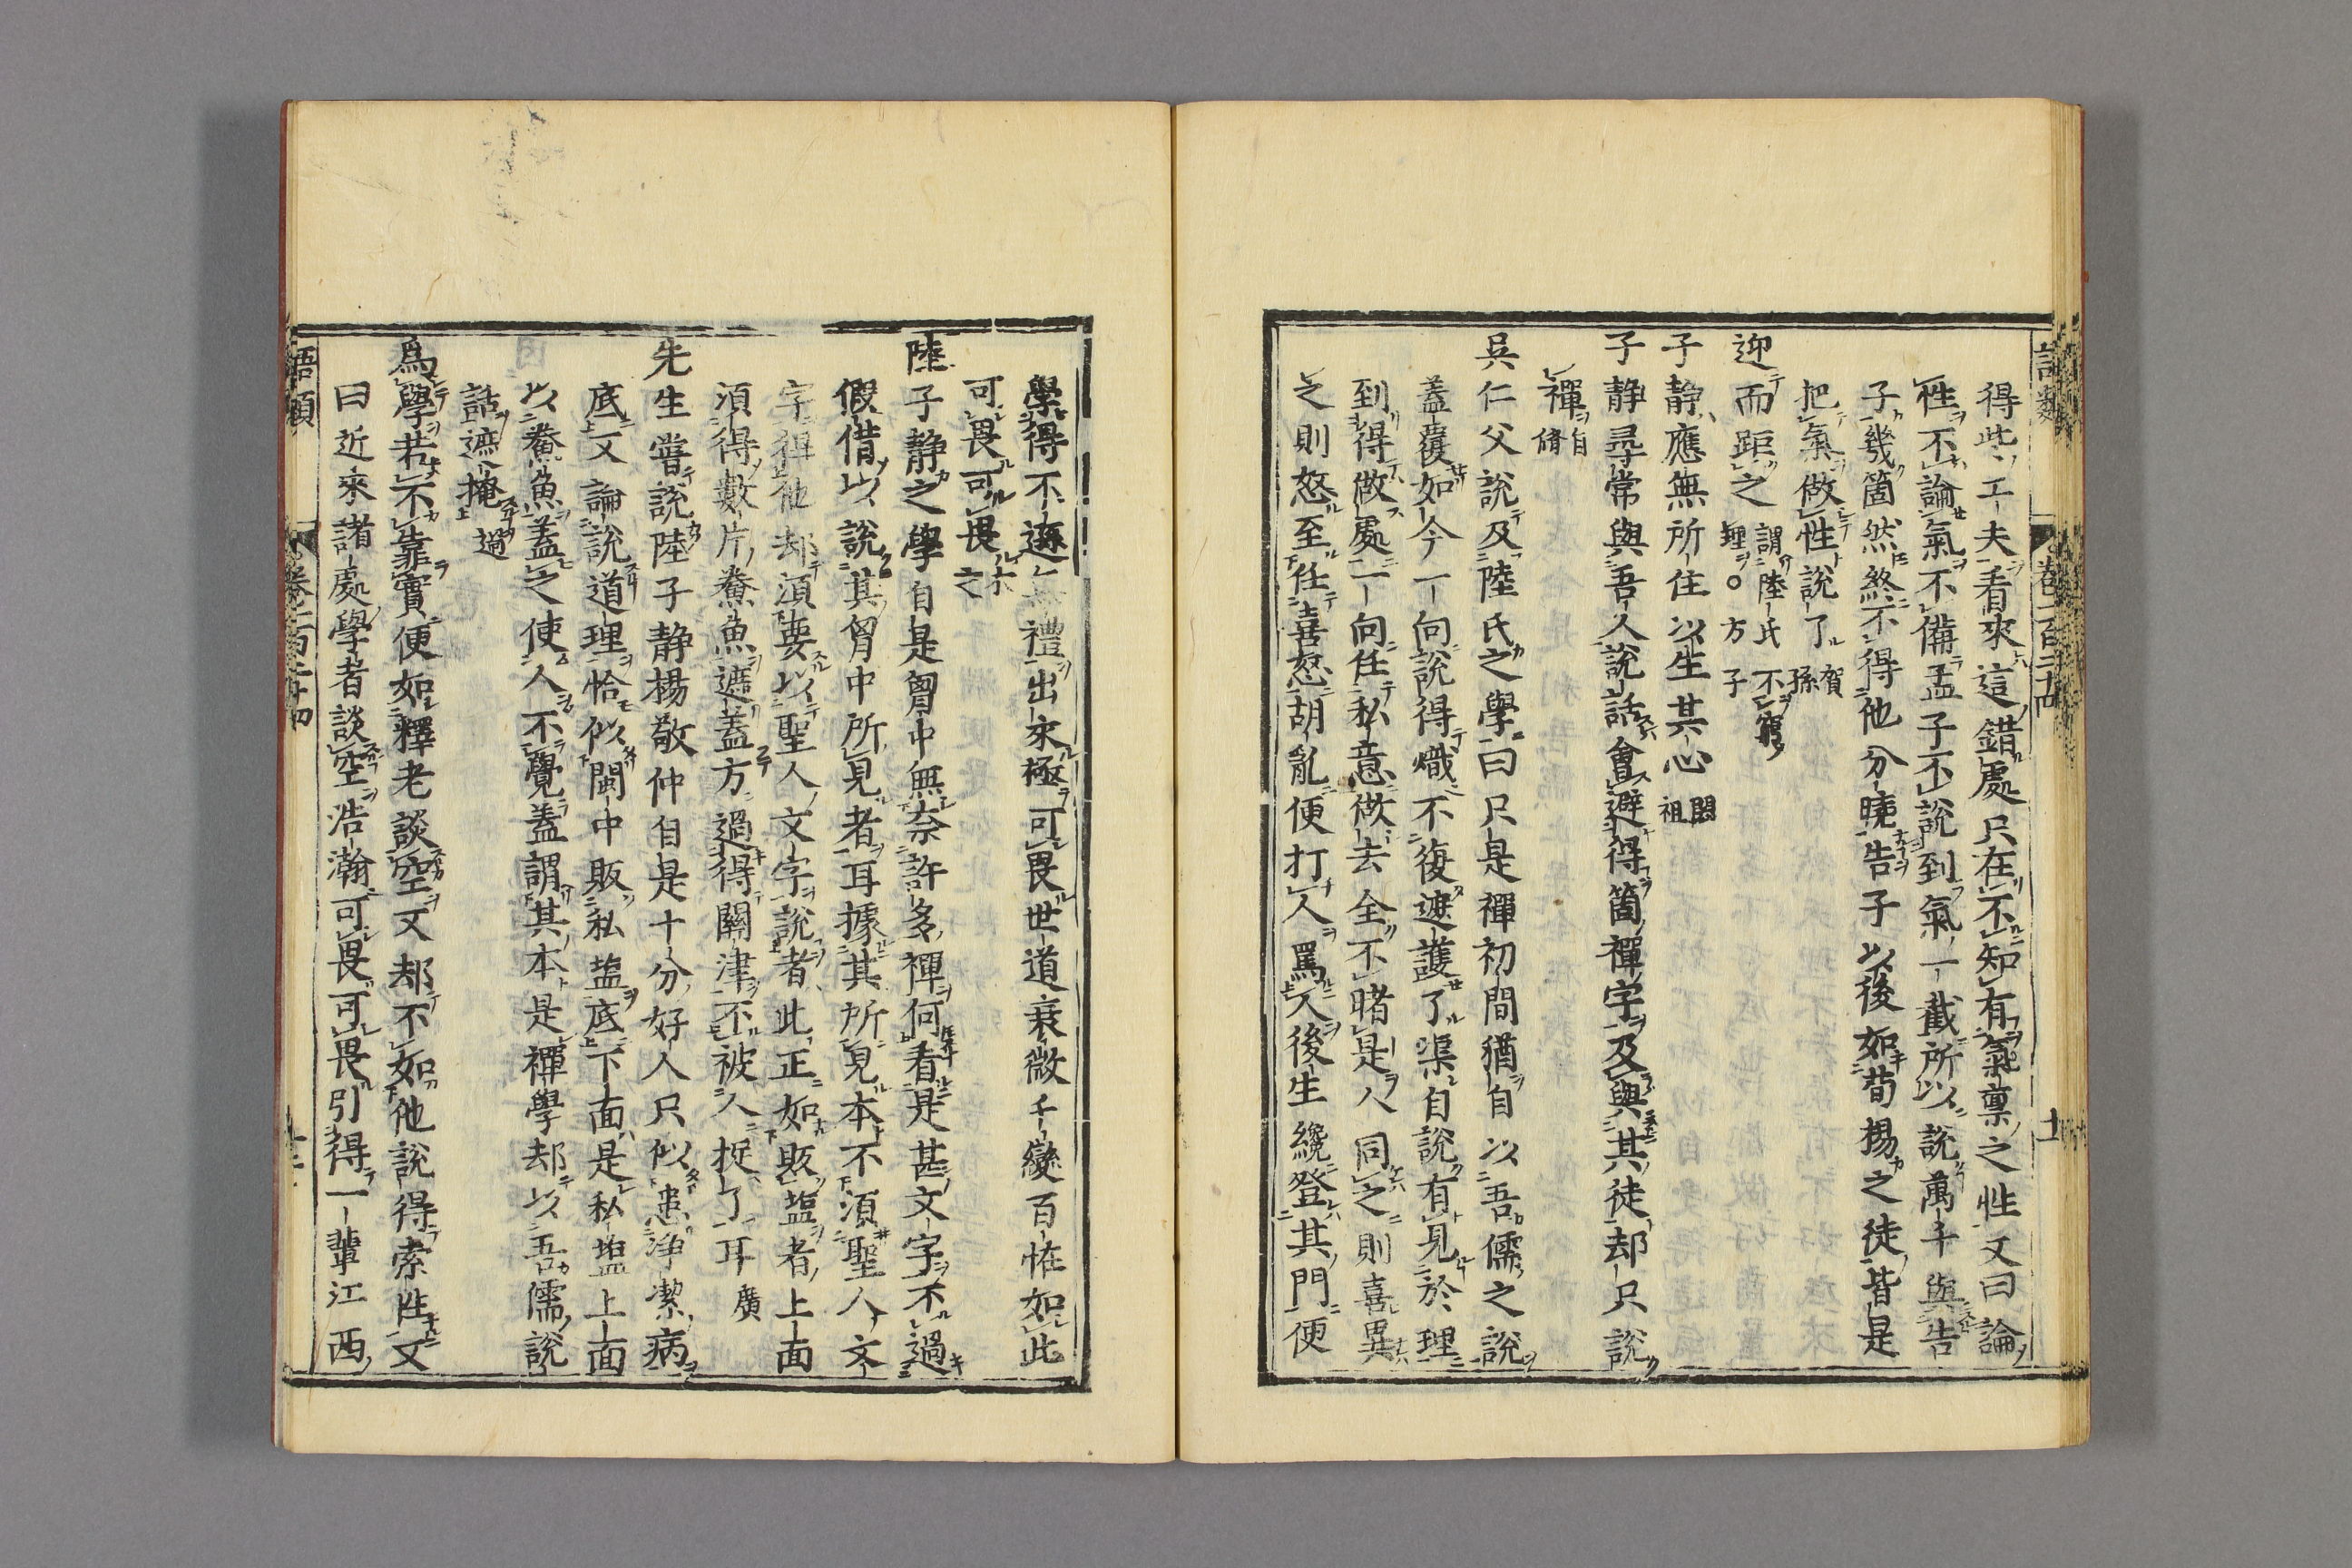 得此工夫看來這錯處只在不知有氣稟之性又曰論
性不論氣不備孟子不說到氣一截所以說萬千與告
子幾箇然終不得他分曉告子以後如荀揚之徒皆是
把氣做性說了賀孫
迎而距之謂陸氏不窮理○方子
子静應無所住以生其心閎祖
子静尋常與吾人說話會避得箇禪字及與其徒却只說
禪自脩
吳仁父說及陸氏之學曰只是禪初間猶自以吾儒之說
蓋覆如今一向說得熾不復遮護了渠自說有見於理
到得做處一向任私意做去全不睹是人同之則喜異
之則怒至任喜怒胡亂便打人罵人後生纔登其門便
學得不遜無禮出來極可畏世道衰微千變百恠如此
可畏可畏之
陸子静之學自是胷中無奈許多禪何看是甚文字不過
假借以說其胷中所見者耳據其所見本不須聖人文
字得他却須要以聖人文字說者此正如販塩者上面
須得數片鯗魚遮蓋方過得關津不被人捉了耳廣
先生嘗說陸子静楊敬仲自是十分好人只似患淨潔病
底又論說道理恰似閩中販私塩底下面是私塩上面
以鯗魚蓋之使人不覺蓋謂其本是禪學却以吾儒說
話遮掩過
爲學若不靠實便如釋老談空又却不如他說得索性又
曰近來諸處學者談空浩瀚可畏可畏引得一輩江西
語類 卷一百二十四